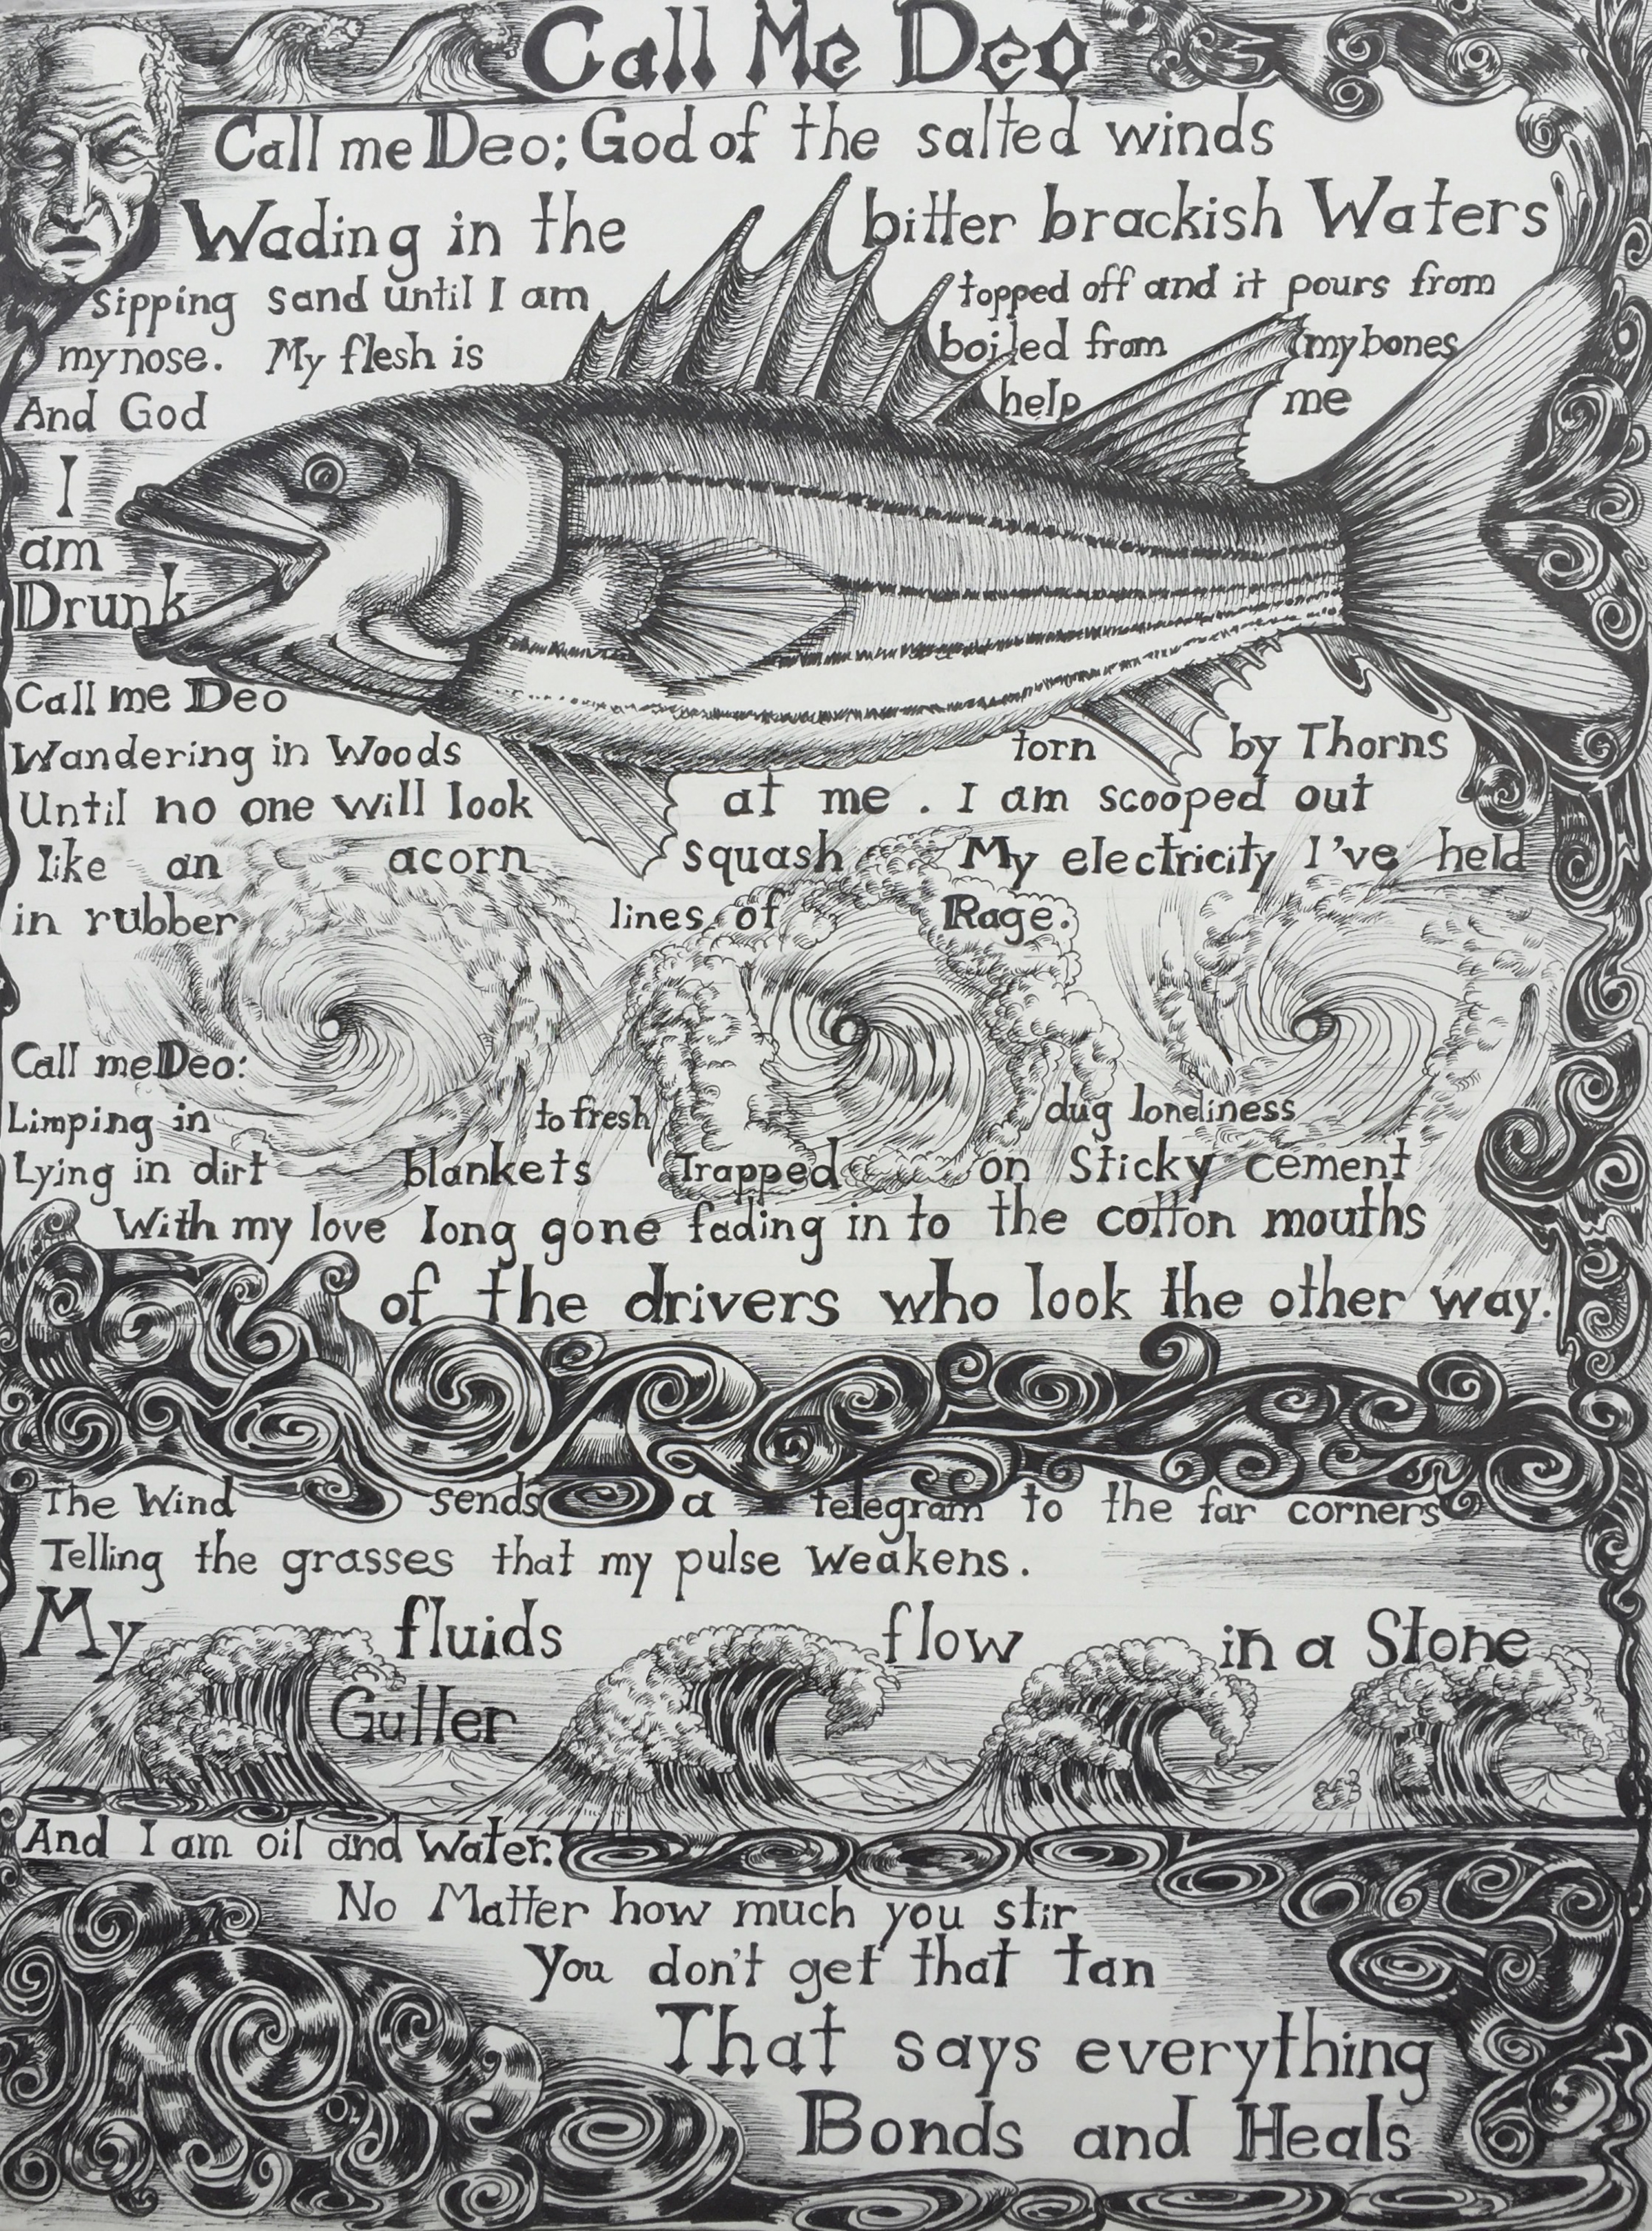 Call Me Deo
Call me Deo; God of the salted winds
Wading in the bitter brackish Waters
sipping sand until I am topped off and it pours from
my nose. My flesh is boiled from my bones
And God help me
I
am
Drunk
Call me Deo
Wandering in Woods torn by Thorns
Until no one will look at me. I am scooped out
like an acorn squash My electricity I've held
in rubber lines of Rage.
Call me Deo:
Limping in to fresh dug loneliness
Lying in dirt blankets Trapped on Sticky cement
With my love long gone fading in to the cotton mouths
of the drivers who look the other way.
The Wind sends a telegram to the far corners
Telling the grasses that my pulse weakens.
My fluids flow in a Stone
Gutter
And I am oil and Water.
No Matter how much you stir
You don't get that tan
That says everything
Bonds and Heals